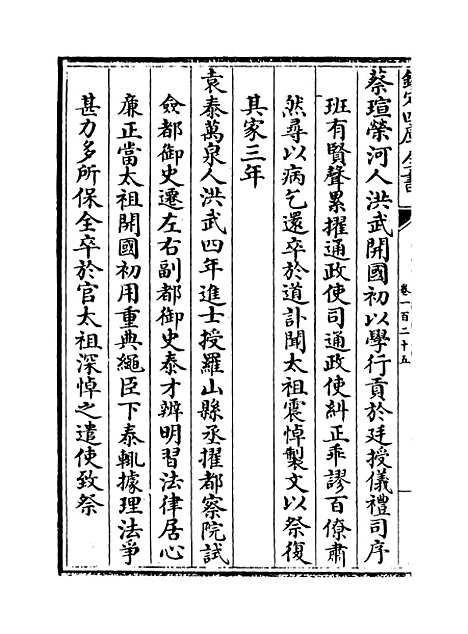 欽定四庫全書
卷一百二十五
蔡瑄榮河人洪武開國初以學行貢於廷授儀禮司序
班有賢聲累擢通政使司通政使糾正乖謬百僚肅
然尋以病乞還卒於道訃聞太祖震悼製文以祭復
其家三年
袁泰萬泉人洪武四年進士授羅山縣丞擢都察院試
僉都御史遷左右副都御史泰才辨明習法律居心
廉正當太祖開國初用重典繩臣下泰輒據理法爭
甚力多所保全卒於官太祖深悼之遣使致祭